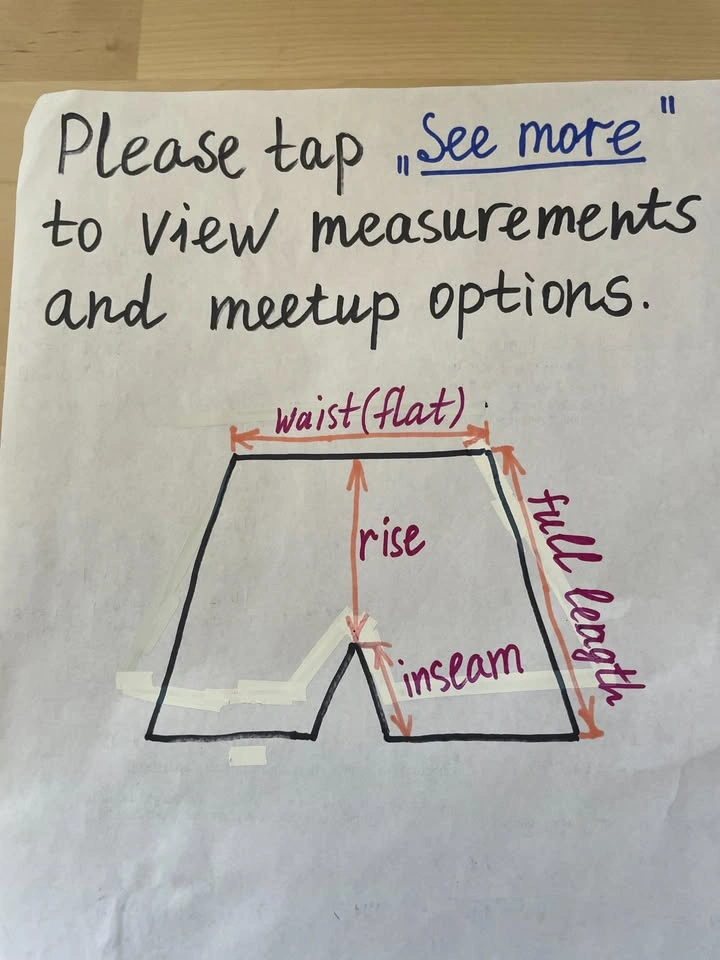 Please tap „See more"
to view measurements
and meetup options.
waist (flat)
rise
full length
inseam